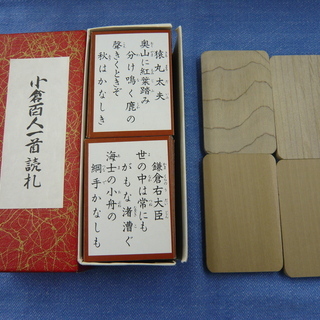 小倉百人一首読札
猿丸大夫
奥山に紅葉踏み
分け鳴く鹿の
聲きくときぞ
秋はかなしき
鎌倉右大臣
世の中は常にも
がもな渚漕ぐ
海士の小舟の
綱手かなしも